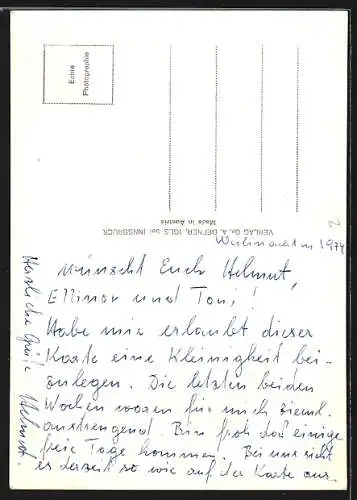 Echte
Photographie
VERLAG G. A. DEFNER, IGLS bei INNSBRUCK
Made in Austria
2
Weihnachten 1974
wünscht Euch Helmut,
Ellinor und Toni!
Habe mir erlaubt dieser
Karte eine Kleinigkeit bei-
zulegen. Die letzten beiden
Wochen waren für mich zieml.
anstrengend. Bin froh daß einige
freie Tage kommen. Bei uns sieht
es derzeit so wie auf der Karte aus.
Herzliche Grüße Helmut.